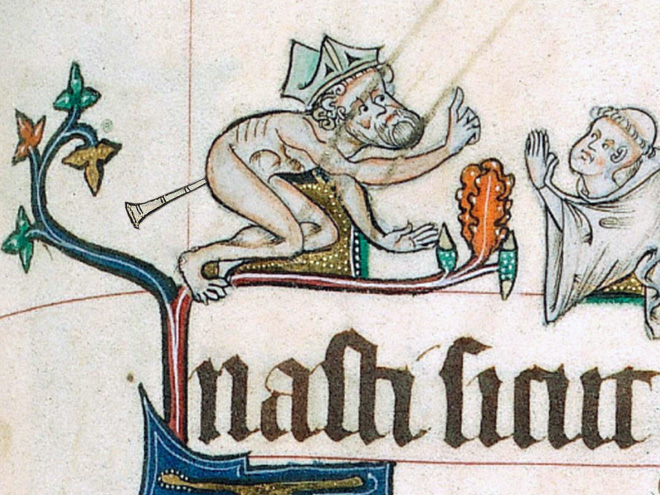 nasti sicut